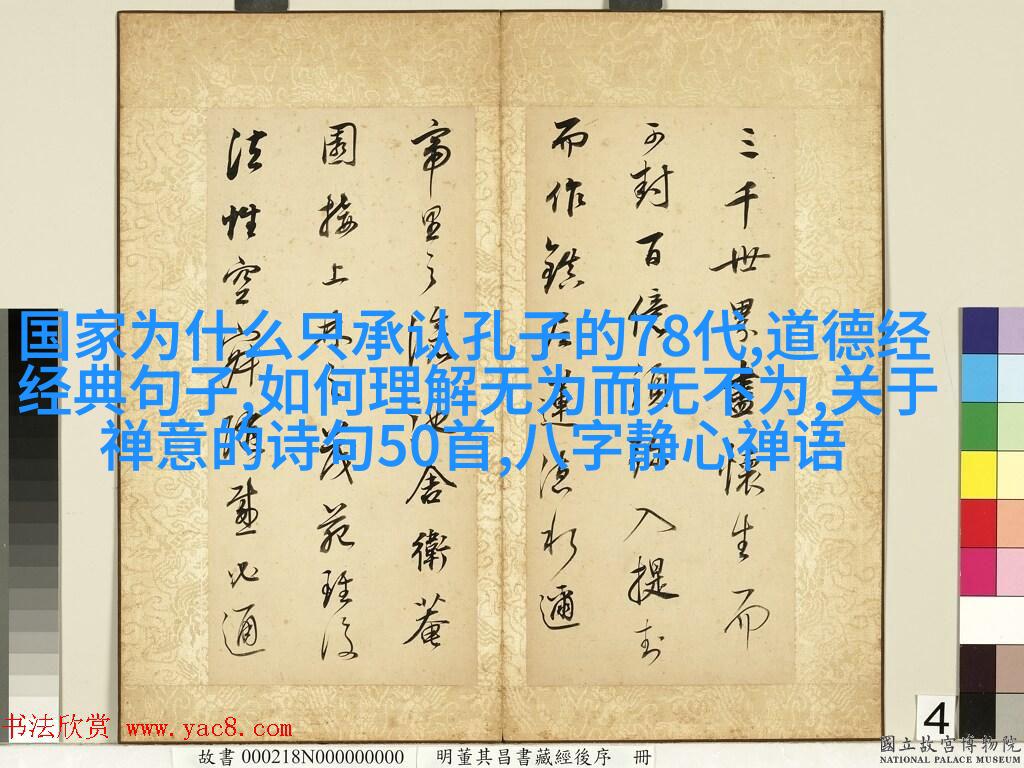 三千世界盡懷生而
可封百億須彌入提封
而作鎮蓮邇
帝里之池舍衛菴
園接上林之茂苑
法性空隨感通
国家为什么只承认孔子的78代,道德经
经典句子,如何理解无为而无不为,关于
禅意的诗句50首,八字静心禅语
4
书法欣赏 www.yac8.com
故書 000218N000000000 明董其昌書藏經後序 冊
國立故宮博物院
NATIONAL PALACE MUSEUM